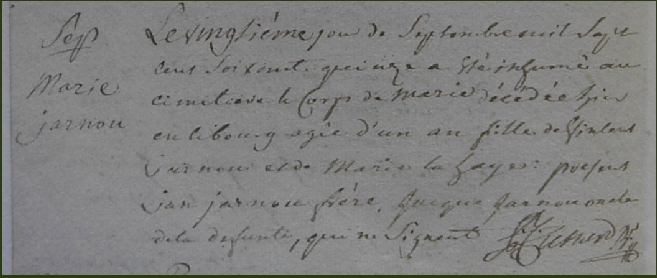 Sep
Marie
jarnou
Le vingtiéme jour de Septembre mil Sept
cens Soixent. quinze a été infumé au
cimetiere le Corps de Marie décédée hier
en libourg agée d'un an fille de
jarnou et de Marie la haye: presens
jan jarnou frére, Jacque jarnou oncle
de la defunte, qui ne Signent